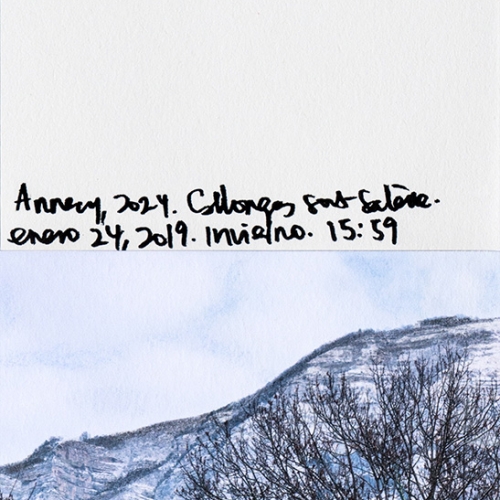 Annecy, 2024. Collonges sous Salève.
enero 24, 2019. Invierno. 15:59